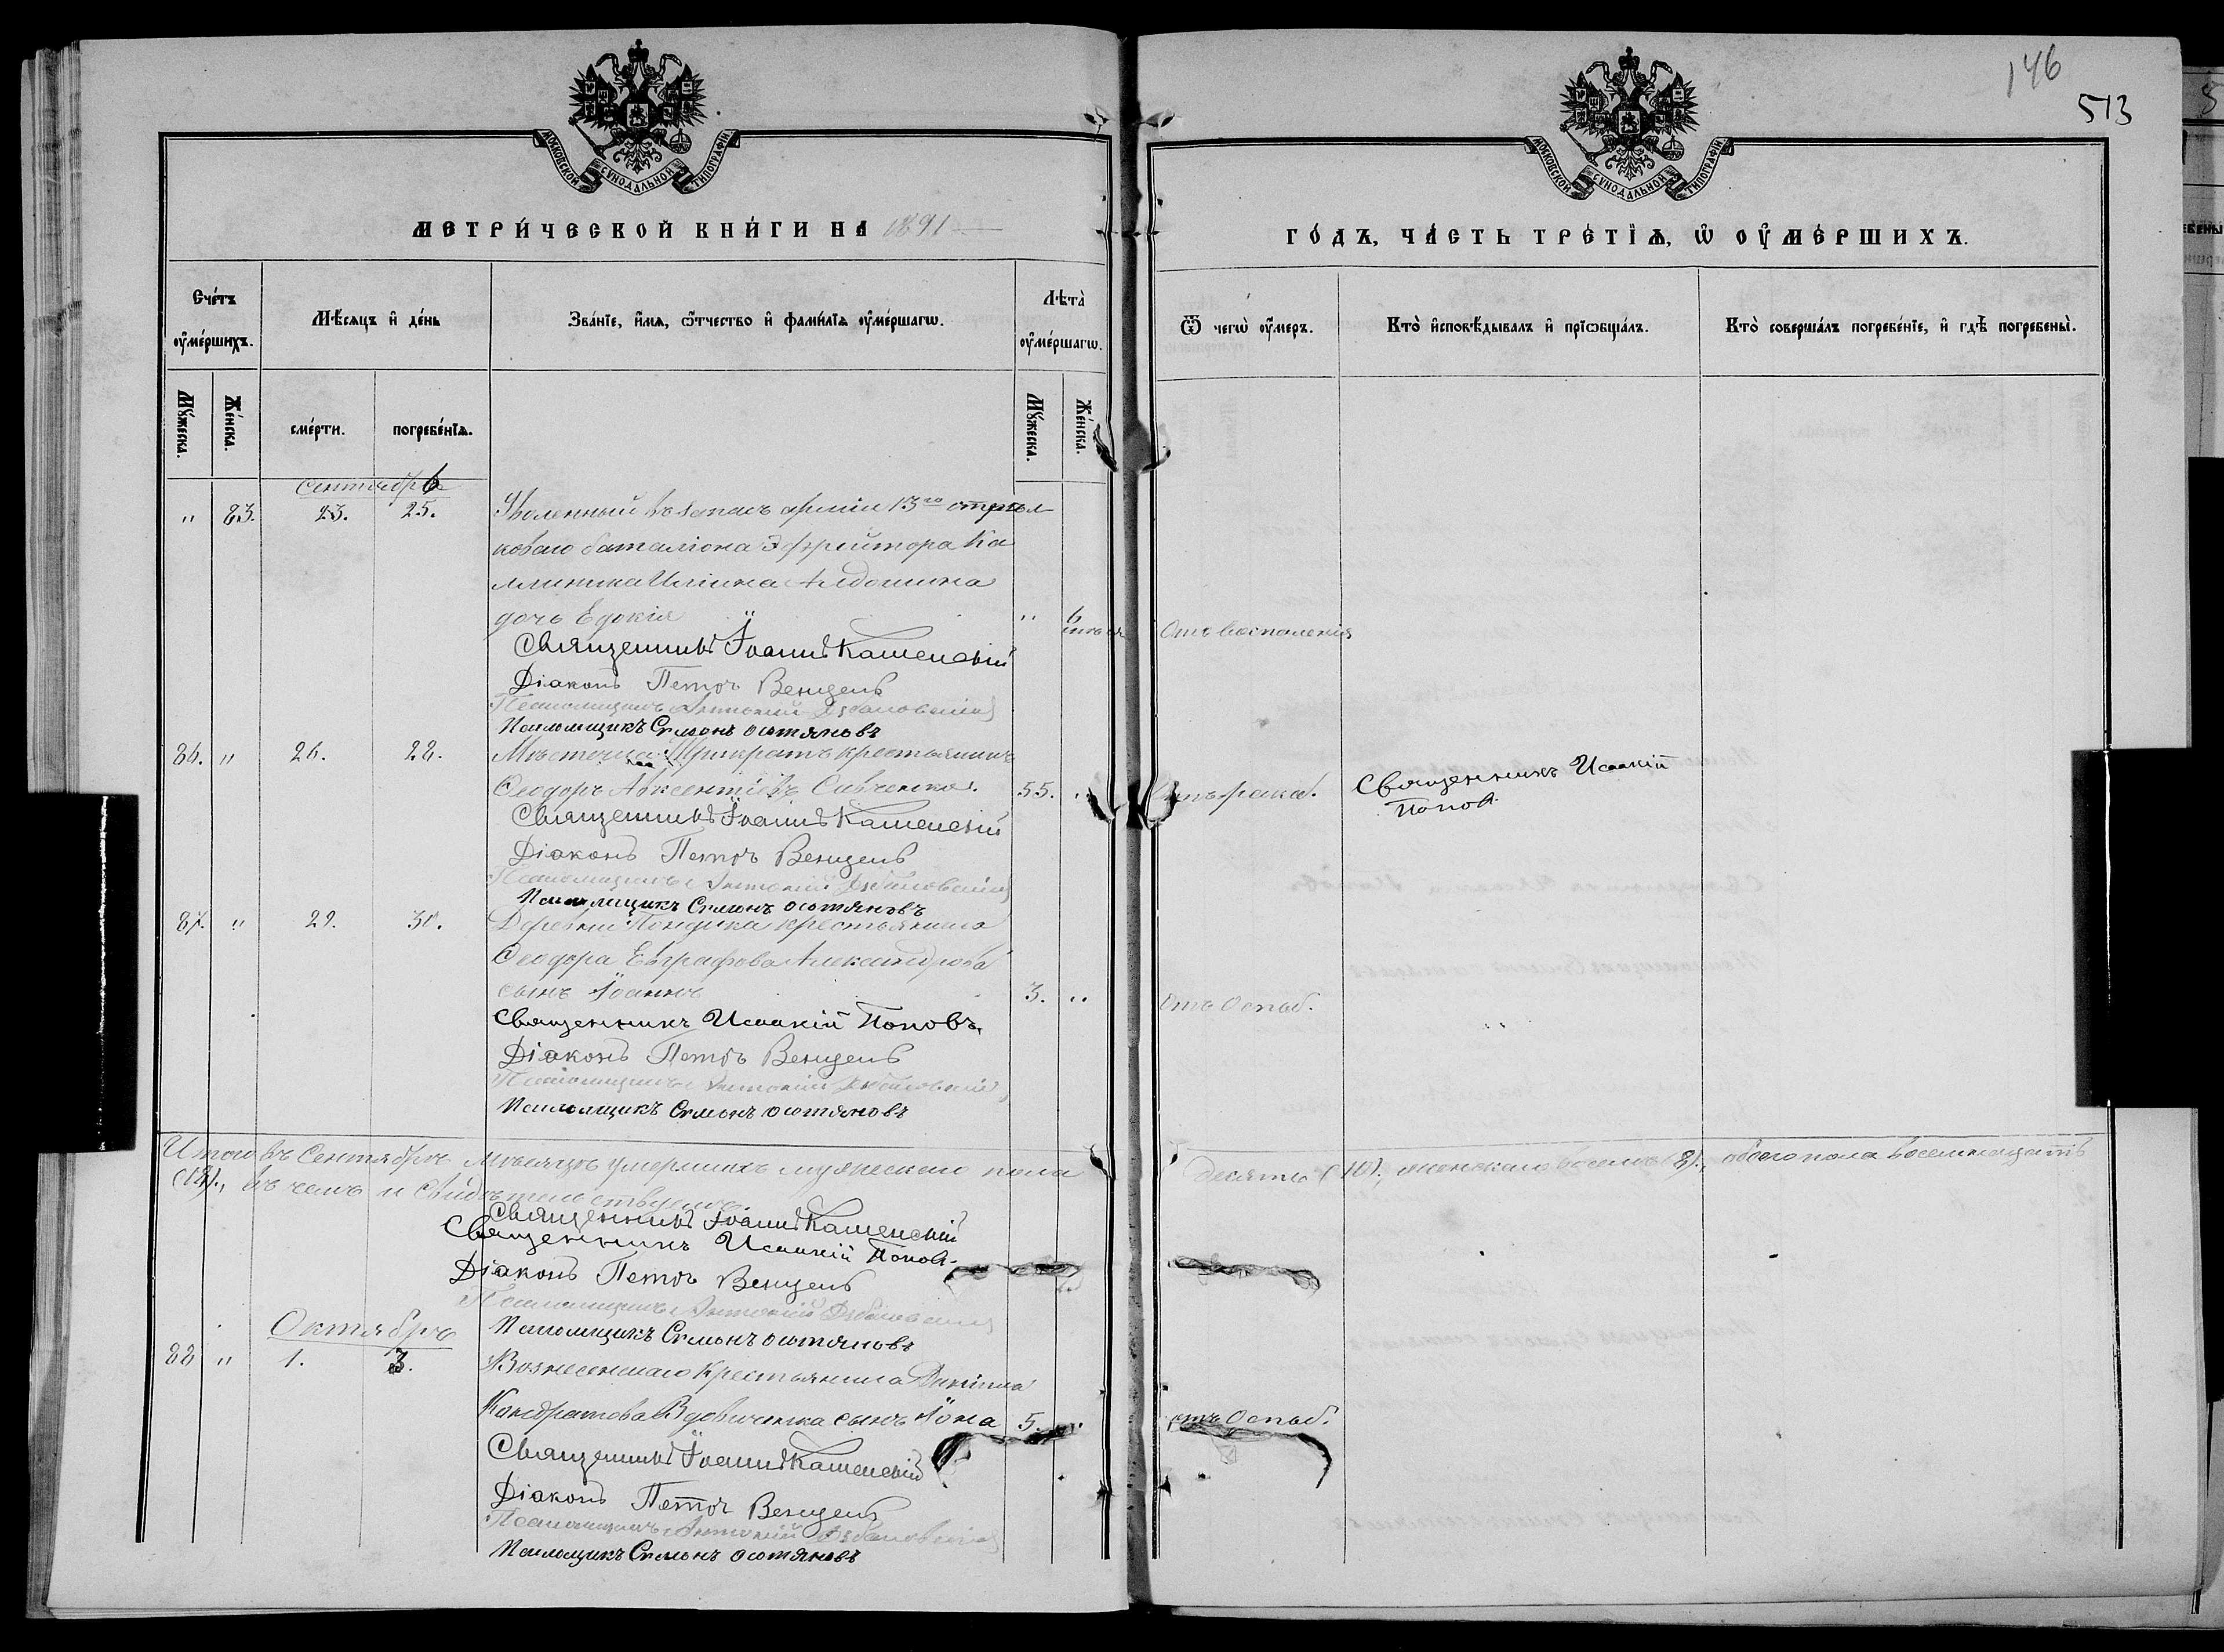 146
513
МОСКОВСКОЙ СУНОДАЛЬНОЙ ТИПОГРАФІИ
МОСКОВСКОЙ СУНОДАЛЬНОЙ ТИПОГРАФІИ
МЕТРИ́ЧЕСКОЙ КНИ́ГИ НА 1891
ГО́ДЪ, ЧА́СТЬ ТРЕ́ТІѦ, Ѡ ОУ҆МЕ́РШИХЪ.
Сче́тъ оу҆ме́ршихъ.
Мѣ́сяцъ и҆ де́нь
Зва́нїе, и҆́мя, ѻ҆́тчество и҆ фами́лїя оу҆ме́ршагѡ.
Лѣта̀ оу҆ме́ршагѡ.
Ѿ чегѡ̀ оу҆́меръ.
Кто̀ и҆сповѣ́дывалъ и҆ прїѡбща́лъ.
Кто̀ соверша́лъ погребе́нїе, и҆ гдѣ̀ погребены̀.
Мꙋ́жеска.
Же́нска.
сме́рти.
погребе́нїя.
Мꙋ́жеска.
Же́нска.
Сентябрь
" 83. 23. 25. Уволенный въ запасъ арміи 13го стрѣл
коваго баталіона Эфрейтора Ка
линика Иліина Алдошина
дочь Едокія " 6 Отъ воспаленія
Священникъ Іоаннъ Каменскій
Діаконъ Петръ Венцель
Псаломщикъ Антоній
Псаломщикъ Сѵмонъ Остяновъ
86. " 26. 28. Мѣстечка крестьянинъ
Ѳеодоръ Авксентіевъ Савченко. 55. " отъ рака. Священникъ Исаакій
Попов.
Священникъ Іоаннъ Каменскій
Діаконъ Петръ Венцель
Псаломщикъ Антоній
Псаломщикъ Сѵмонъ Остяновъ
87. " 29. 30. Деревни крестьянина
Ѳеодора Евграфова Александрова
сынъ Іоаннъ 3. " Отъ Оспы.
Священникъ Исаакій Поповъ.
Діаконъ Петръ Венцель
Псаломщикъ Антоній
Псаломщикъ Сѵмонъ Остяновъ
Итого въ Сентябрѣ Мѣсяцѣ умершихъ мужескаго пола десять (10). женскаго восемь (8)., обоего пола восемнадцать
(18)., въ чемъ и свидѣтельствуемъ
Священникъ Іоаннъ Каменскій
Священникъ Исаакій Попов.
Діаконъ Петръ Венцель
Псаломщикъ Антоній
Псаломщикъ Сѵмонъ Остяновъ
Октябрь
88 " 1. 3. Вознесенскаго Крестьянина
Кондратова Вдовиченка сынъ Іона 5. отъ Оспы.
Священникъ Іоаннъ Каменскій
Діаконъ Петръ Венцель
Псаломщикъ Антоній
Псаломщикъ Сѵмонъ Остяновъ